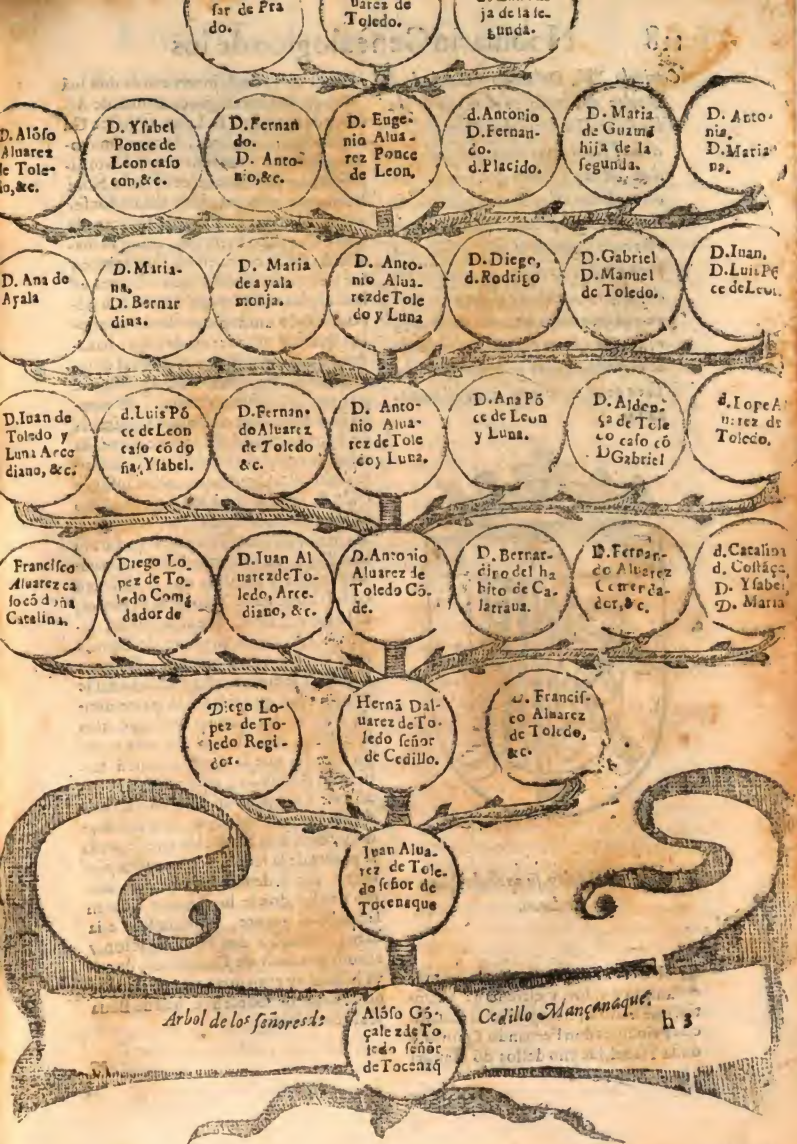 sar de Pra
do.
uarez de
Toledo.
ja de la se-
gunda.
D. Alōso
Aluarez
de Tole-
do,&c.
D. Ysabel
Ponce de
Leon caso
con,&c.
D. Fernan
do.
D. Anto-
nio,&c.
D. Euge-
nio Alua-
rez Ponce
de Leon.
d. Antonio
D. Fernan-
do.
d. Placido.
D. Maria
de Guzmā
hija de la
segunda.
D. Anto-
nia.
D. Maria-
na.
D. Ana de
Ayala
D. Maria-
na.
D. Bernar
dina.
D. Maria
de ayala
monja.
D. Anto-
nio Alua-
rez de Tole
do y Luna
D. Diego,
d. Rodrigo
D. Gabriel
D. Manuel
de Toledo.
D. Iuan.
D. Luis Pō
ce de Leon.
D. Iuan de
Toledo y
Luna Arce
diano, &c.
d. Luis Pō
ce de Leon
caso cō do
ña Ysabel.
D. Fernan-
do Aluarez
de Toledo
&c.
D. Anto-
nio Alua-
rez de Tole
do y Luna.
D. Ana Pō
ce de Leon
y Luna.
D. Aldon-
ça de Tole
do caso cō
D Gabriel
d. Lope A
uarez de
Toledo.
Francisco
Aluarez ca
so cō doña
Catalina.
Diego Lo-
pez de To-
ledo Comē
dador de
D. Iuan Al
uarez de To-
ledo, Arce-
diano, &c.
D. Antonio
Aluarez de
Toledo Cō-
de.
D. Bernar-
diro del ha
bito de Ca-
latraua.
D. Fernan-
do Aluarez
Comenda-
dor,&c.
d. Catalina
d. Costāça,
D. Ysabel,
D. Maria
Diego Lo-
pez de To-
ledo Regi-
dor.
Hernā Dal-
uarez de To-
ledo señor
de Cedillo.
D. Francis-
co Aluarez
de Toledo,
&c.
Iuan Alua-
rez de Tole-
do señor de
Tocenaque
Arbol de los señores de
Cedillo Mançanaque.
h 3
Alōso Gō-
çalez de To-
ledo señor
de Tocenaq̄